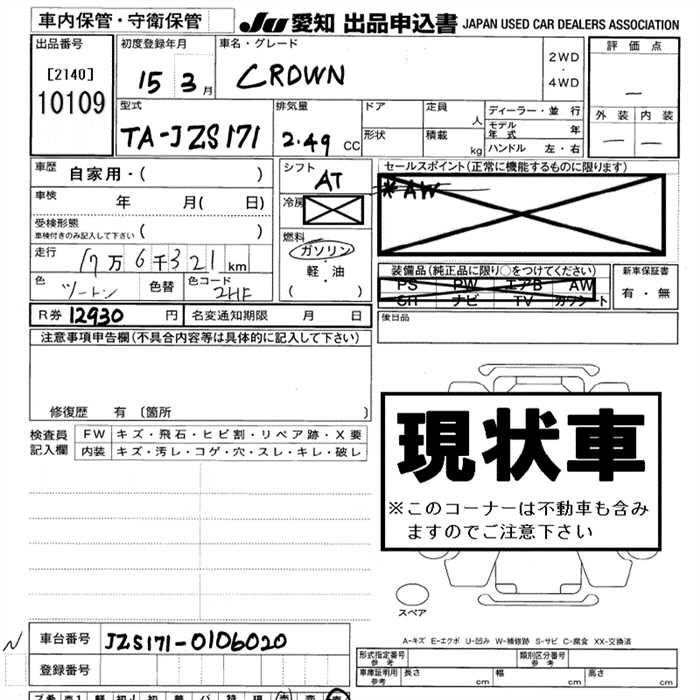 車内保管・守衛保管
JU 愛知 出品申込書 JAPAN USED CAR DEALERS ASSOCIATION
出品番号
[2140]
10109
初度登録年月
15 3月
車名・グレード
CROWN
2WD
・
4WD
評価点
—
外装 内装
— —
型式
TA-JZS171
排気量
2.49 CC
ドア
形状
定員 人
積載 kg
ディーラー・並行
モデル年式 年
ハンドル 左・右
車歴 自家用・( )
車検 年 月( 日)
受検形態
車検付きのみ記入して下さい ( )
走行 17万6千321km
色 ツートン 色替 色コード 2HF
シフト AT
冷房
燃料
ガソリン
・
軽・油
( )
セールスポイント(正常に機能するものに限ります)
*AW
装備品(純正品に限り○をつけてください)
PS PW エアB AW
SR ナビ TV カワシート
新車保証書
有・無
後日品
R券 12930 円 名変通知期限 月 日
注意事項申告欄(不具合内容等は具体的に記入して下さい)
修復歴 有 〔箇所 〕
検査員記入欄
FW キズ・飛石・ヒビ割・リペア跡・X要
内装 キズ・汚レ・コゲ・穴・スレ・キレ・破レ
現状車
※このコーナーは不動車も含み
ますのでご注意下さい
スペア
A-キズ E-エクボ U-凹み W-補修跡 S-サビ C-腐食 XX-交換済
N 車台番号 JZS171-0106020
登録番号
形式指定番号 参考
類別区分番号 参考
車庫証明用 参考 長さ cm 幅 cm 高さ cm